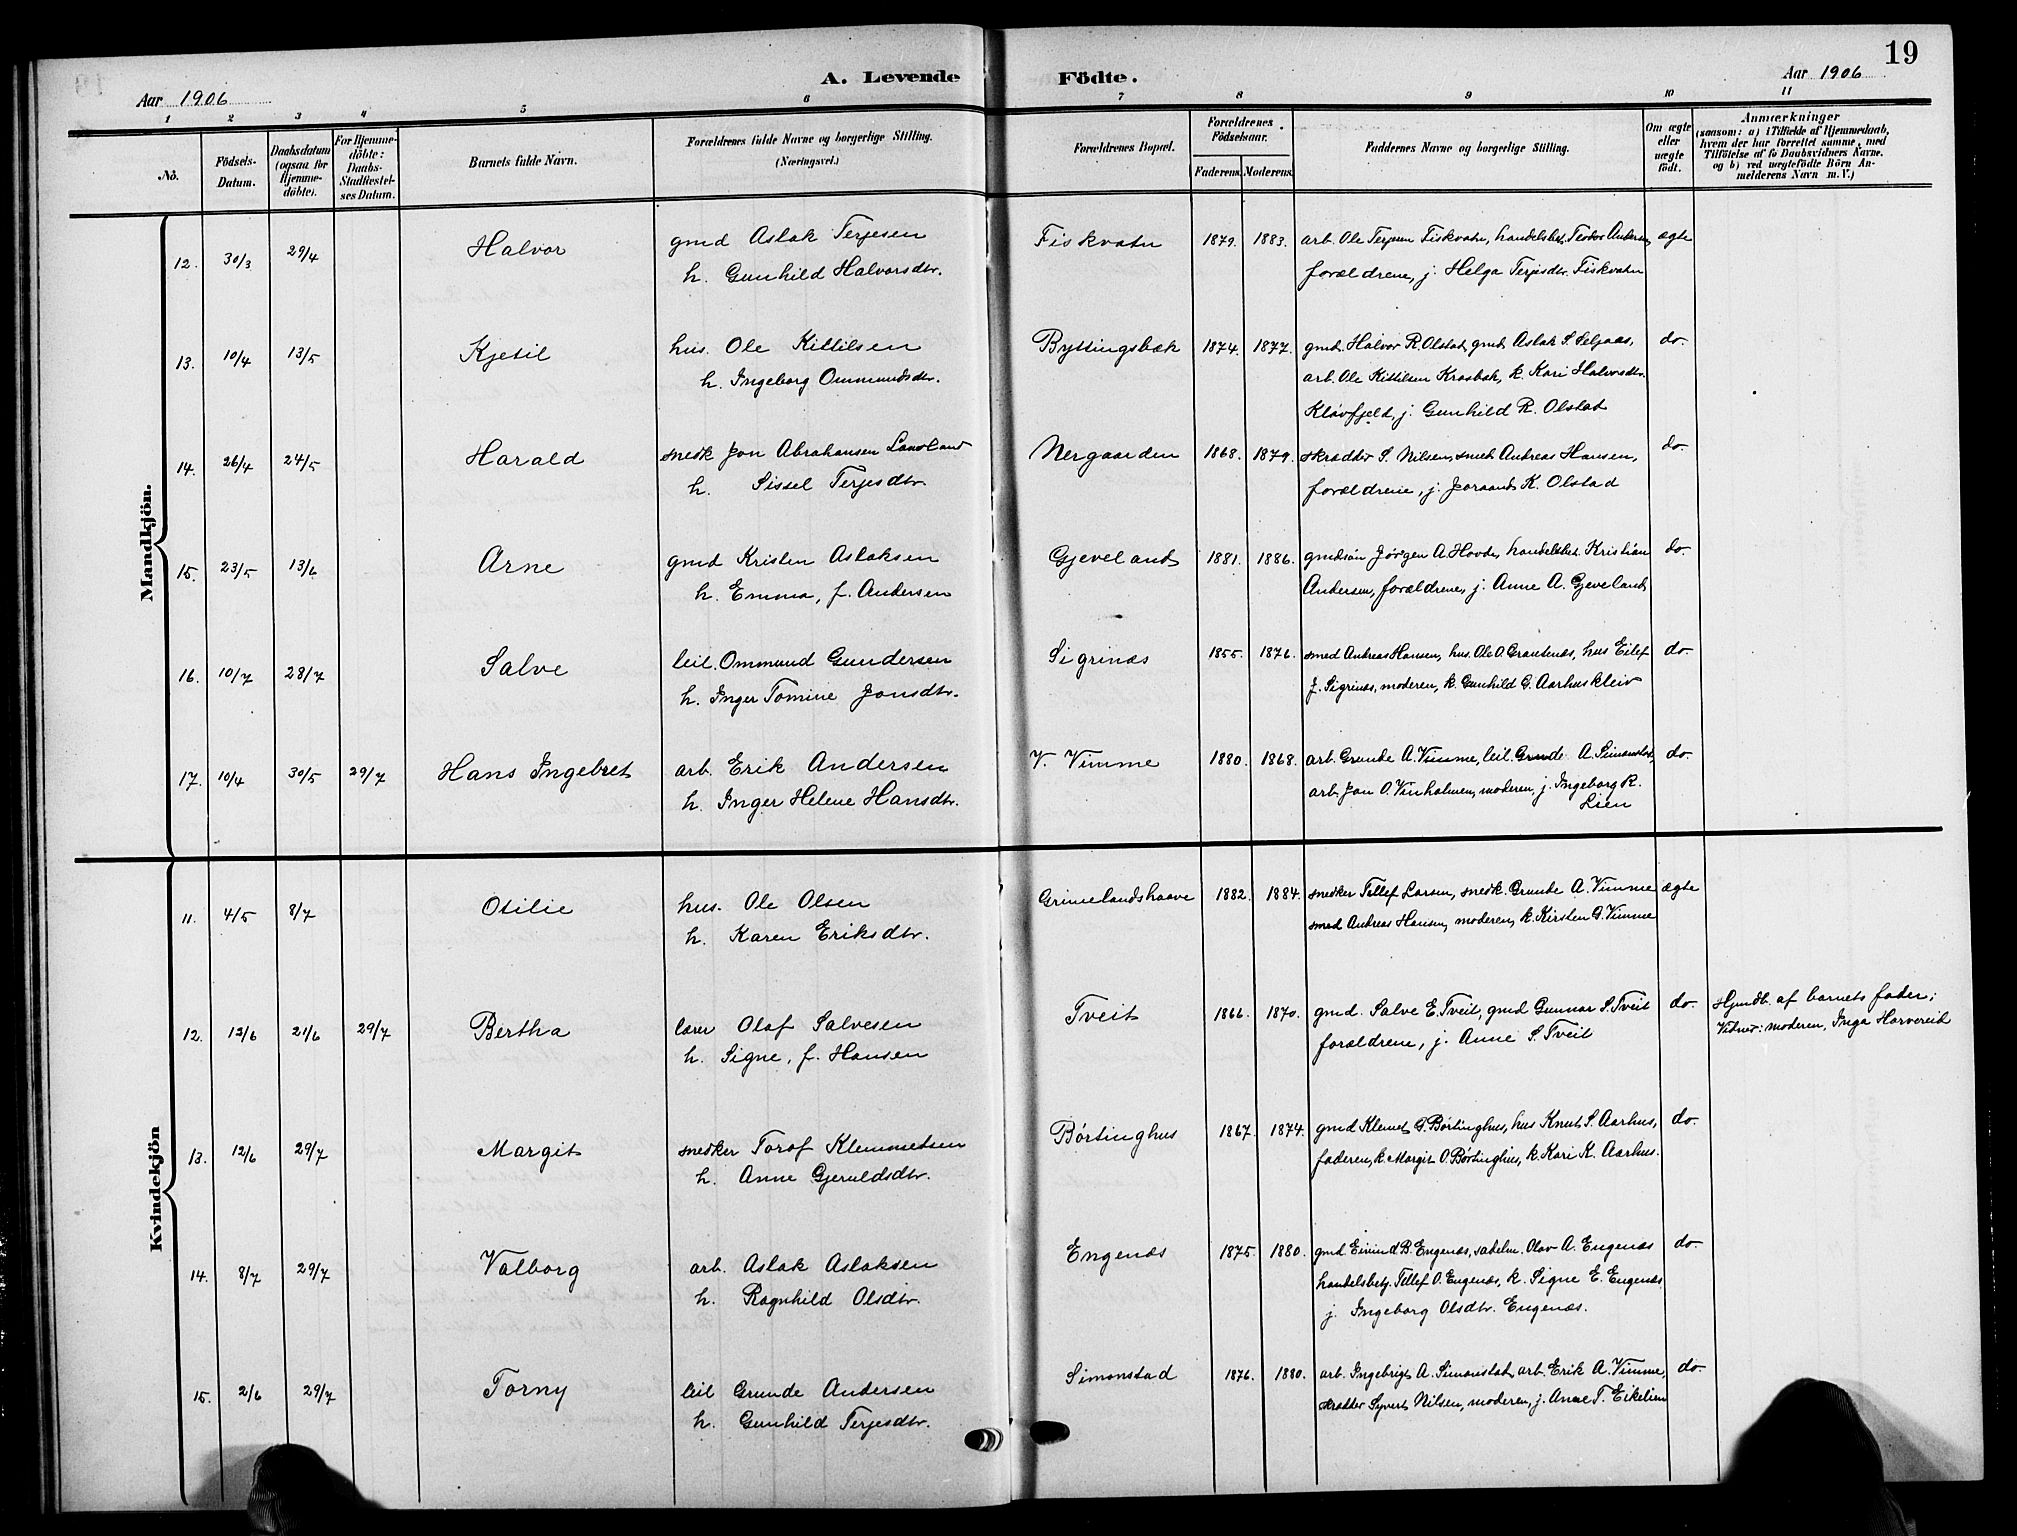 19
A. Levende Födte.
Aar 1906
Aar 1906
1 2 3 4 5 6 7 8 9 10 11
No.
Födsels-Datum.
Daabsdatum (ogsaa for Hjemme-döbte).
For Hjemme-döbte: Daabs-Stadfæstel-ses Datum.
Barnets fulde Navn.
Forældrenes fulde Navne og borgerlige Stilling.
(Næringsvei.)
Forældrenes Bopæl.
Forældrenes Födselsaar.
Faderens. Moderens.
Faddernes Navne og borgerlige Stilling.
Om ægte eller uægte födt.
Anmærkninger
(saasom: a) i Tilfælde af Hjemmedaab,
hvem der har forrettet samme, med
Tilföielse af to Daabsvidners Navne.
og b) ved uægtefödte Börn An-
melderens Navn m. V.)
Mandkjön.
12. 30/3 29/4 Halvor gmd Aslak Terjesen Fiskvatn 1879. 1883. arb. Ole Terjesen Fiskvatn, handelsbet. Andersen, ægte
h. Gunhild Halvorsdtr. forældrene, j. Helga Terjesdtr. Fiskvatn
13. 10/4 13/5 Kjetil hus. Ole Kittilsen Byttingsbæk 1874. 1877. gmd. Halvor R. Olstad, gmd. Aslak S. Seljaas, do.
h. Ingeborg Ommundsdtr. arb. Ole Kittilsen Krosbæk, k. Kari Halvorsdtr.
Kløvfjeld, j. Gunhild R. Olstad
14. 26/4 24/5 Harald snedk Jon Abrahamsen Landland Nergaarden 1868. 1879. skrædder S. Nilsen, smed Andreas Hansen, do.
h. Sissel Terjesdtr. forældrene, j. Joraand K. Olstad
15. 23/5 13/6 Arne gmd Kristen Aslaksen Gjeveland 1881. 1886. gmdsøn Jörgen A. Hovde, handelsbet. Kristian do.
h. Emma, f. Andersen Andersen, forældrene, j. Anne A. Gjeveland
16. 10/7 28/7 Salve leil. Ommund Gundersen Sigrinæs 1855. 1876. smed Andreas Hansen, hus. Ole O. Groubnæs, hus Eilef do.
h. Inger Tomine Jonsdtr. J. Sigrinæs, moderen, k. Gunhild G. Aarhuskleiv
17. 10/4 30/5 29/7 Hans Ingebret arb. Erik Andersen V. Vimme 1880. 1868. arb. Grunde A. Vimme, leil. Grunde A. Simonstad, do.
h. Inger Helene Hansdtr. arb. Jon O. Vinholmen, moderen, j. Ingeborg R.
Lien
Kvindekjön
11. 4/5 8/7 Otilie hus. Ole Olsen Grimelandshaave 1882. 1884. snedker Tellef Larsen, snedk. Grunde A. Vimme ægte
h. Karen Eriksdtr. smed Andreas Hansen, moderen, k. Kirsten G. Vimme
12. 12/6 21/6 29/7 Bertha lærer Olaf Salvesen Tveit 1866. 1870. gmd. Salve E. Tveit, gmd Gunnar S. Tveit do. Hjmdb. af barnets fader;
h. Signe, f. Hansen forældrene, j. Anne S. Tveit Vidner: moderen, Inga Horvereid
13. 12/6 29/7 Margit snedker Torof Klemmetsen Børtinghus 1867. 1874. gmd Klemet G. Børtinghus, hus Knut S. Aarhus, do.
h. Anne Gjeruldsdtr. faderen, k. Margit O. Børtinghus, k. Kari K. Aarhus.
14. 8/7 29/7 Valborg arb. Aslak Aslaksen Engenæs 1875. 1880. gmd Eivind B. Engenæs, sadelm. Olav A. Engenæs do.
h. Ragnhild Olsdtr. handelsbetj. Tellef O. Engenæs, k. Signe E. Engenæs,
j. Ingeborg Olsdtr. Engenæs.
15. 2/6 29/7 Torny leil Grunde Andersen Simonstad 1876. 1880. arb. Ingebrigt A. Simonstad, arb. Erik A. Vimme, do.
h. Gunhild Terjesdtr. skrædder Syvert Nilsen, moderen, j. Anne T. Eikelien